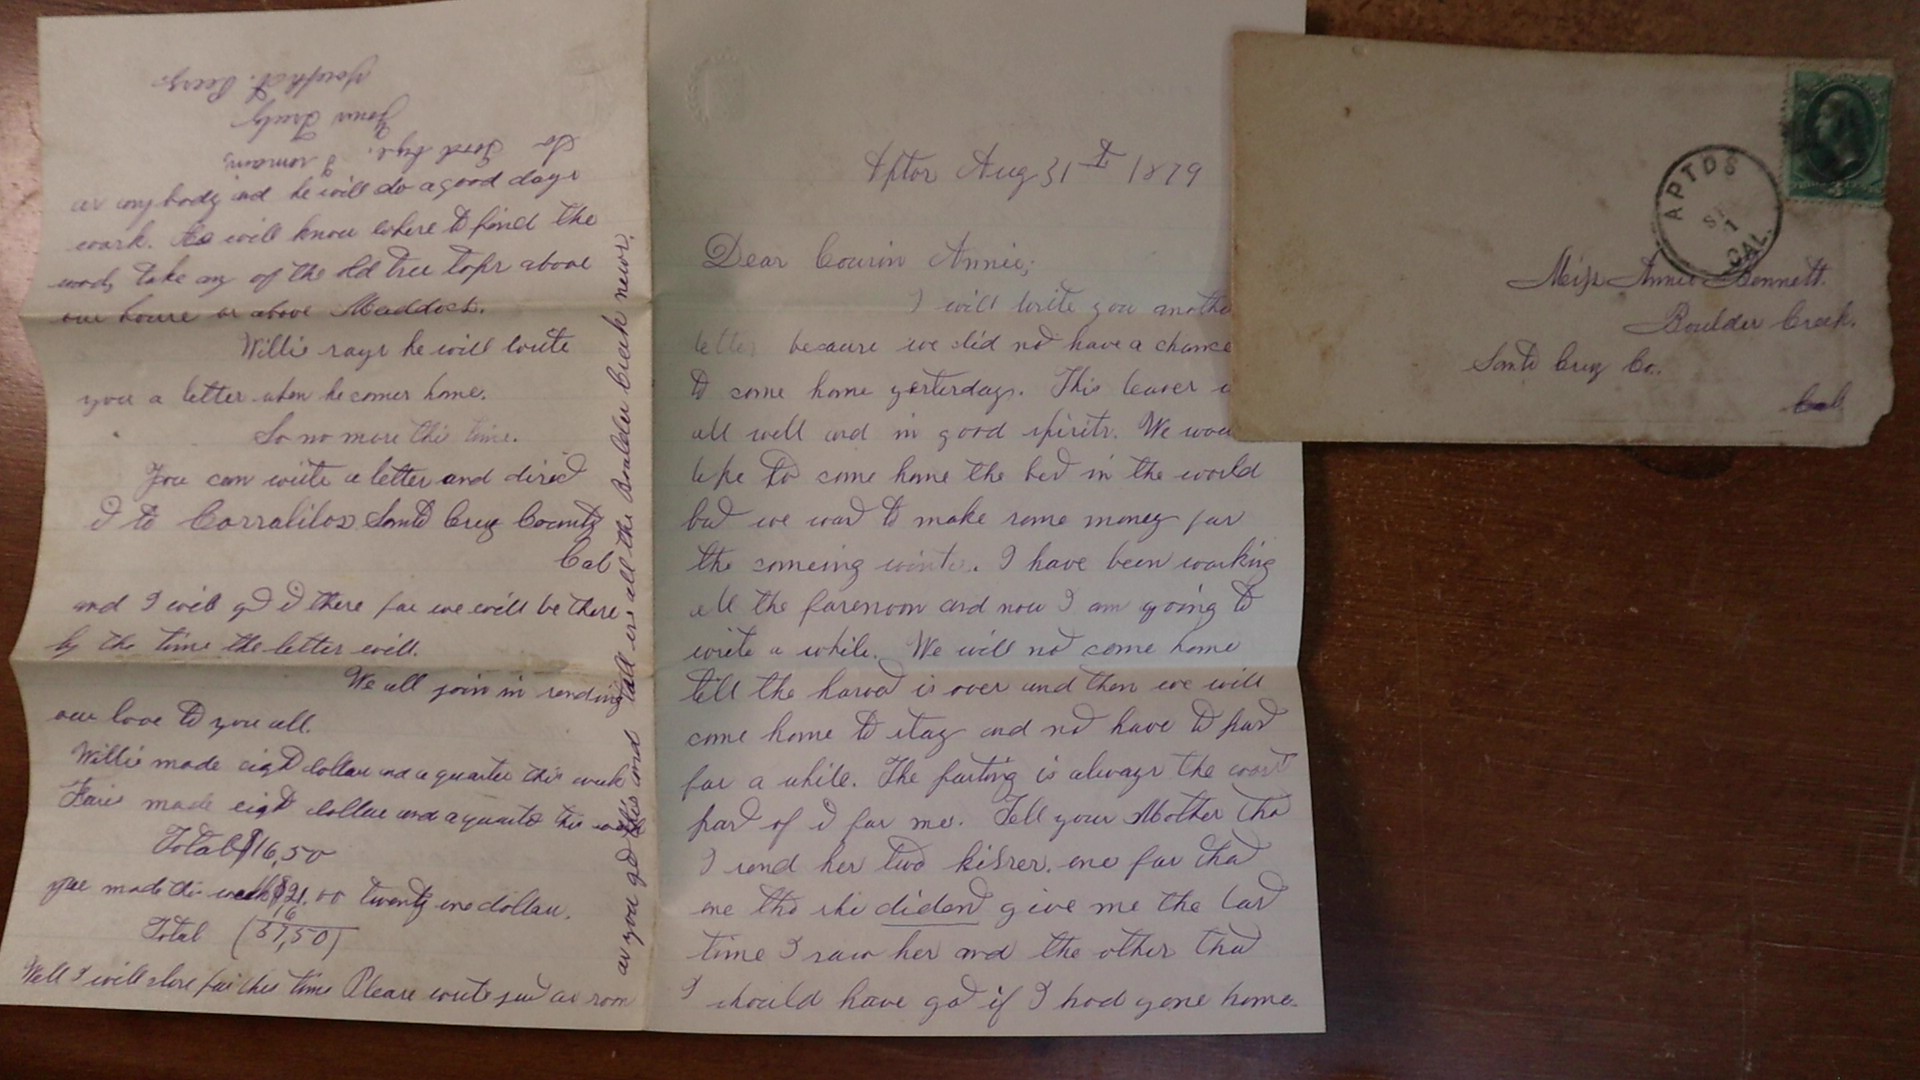 Aptos Aug 31st 1879
Dear Cousin Annie;
I will write you anothe
letter because we did not have a chance
to come home yesterday. This leaves u
all well and in good spirits. We wou
like to come home the best in the world
but we want to make some money for
the comeing winter. I have been working
all the forenoon and now I am going to
write a while. We will not come home
till the harvest is over and then we will
come home to stay and not have to part
for a while. The parting is always the worst
part of it for me. Tell your Mother that
I send her two kisses. one for that
one tha she dident give me the last
time I saw her and the other that
I should have got if I had gone home.
as anybody and he will do a good days
work. He will know where to find the
wood, take any of the old tree tops above
our house or above Maddocks.
Willie says he will write
you a letter when he comes home.
So no more this time.
You can write a letter and direct
it to Corralilos Santa Cruz County
Cal
and I will get it there for we will be there
by the time the letter will.
We all join in sending
our love to you all.
Willie made eight dollars and a quarter this week
made eight dollars and a quarter this week
Total $16,50
you made this week $21.00 twenty one dollars.
16
Total (37,50)
Well I will close for this time Please write just as soon
as you get this and tell us all the Boulder Creek news.
So Good bye. I remain
Yours Truly
Joseph A.
APTOS
SEP
1
CAL.
Miss Annie Bennett.
Boulder Creek.
Santa Cruz Co.
Cal